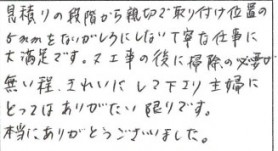 見積りの段階から親切で取り付け位置の
よれれをないがしろにしない丁寧な仕事に
大満足です。又工事の後に掃除の必要が
無い程、きれいにして下さり主婦に
とってはありがたい限りです。
本当にありがとうございました。